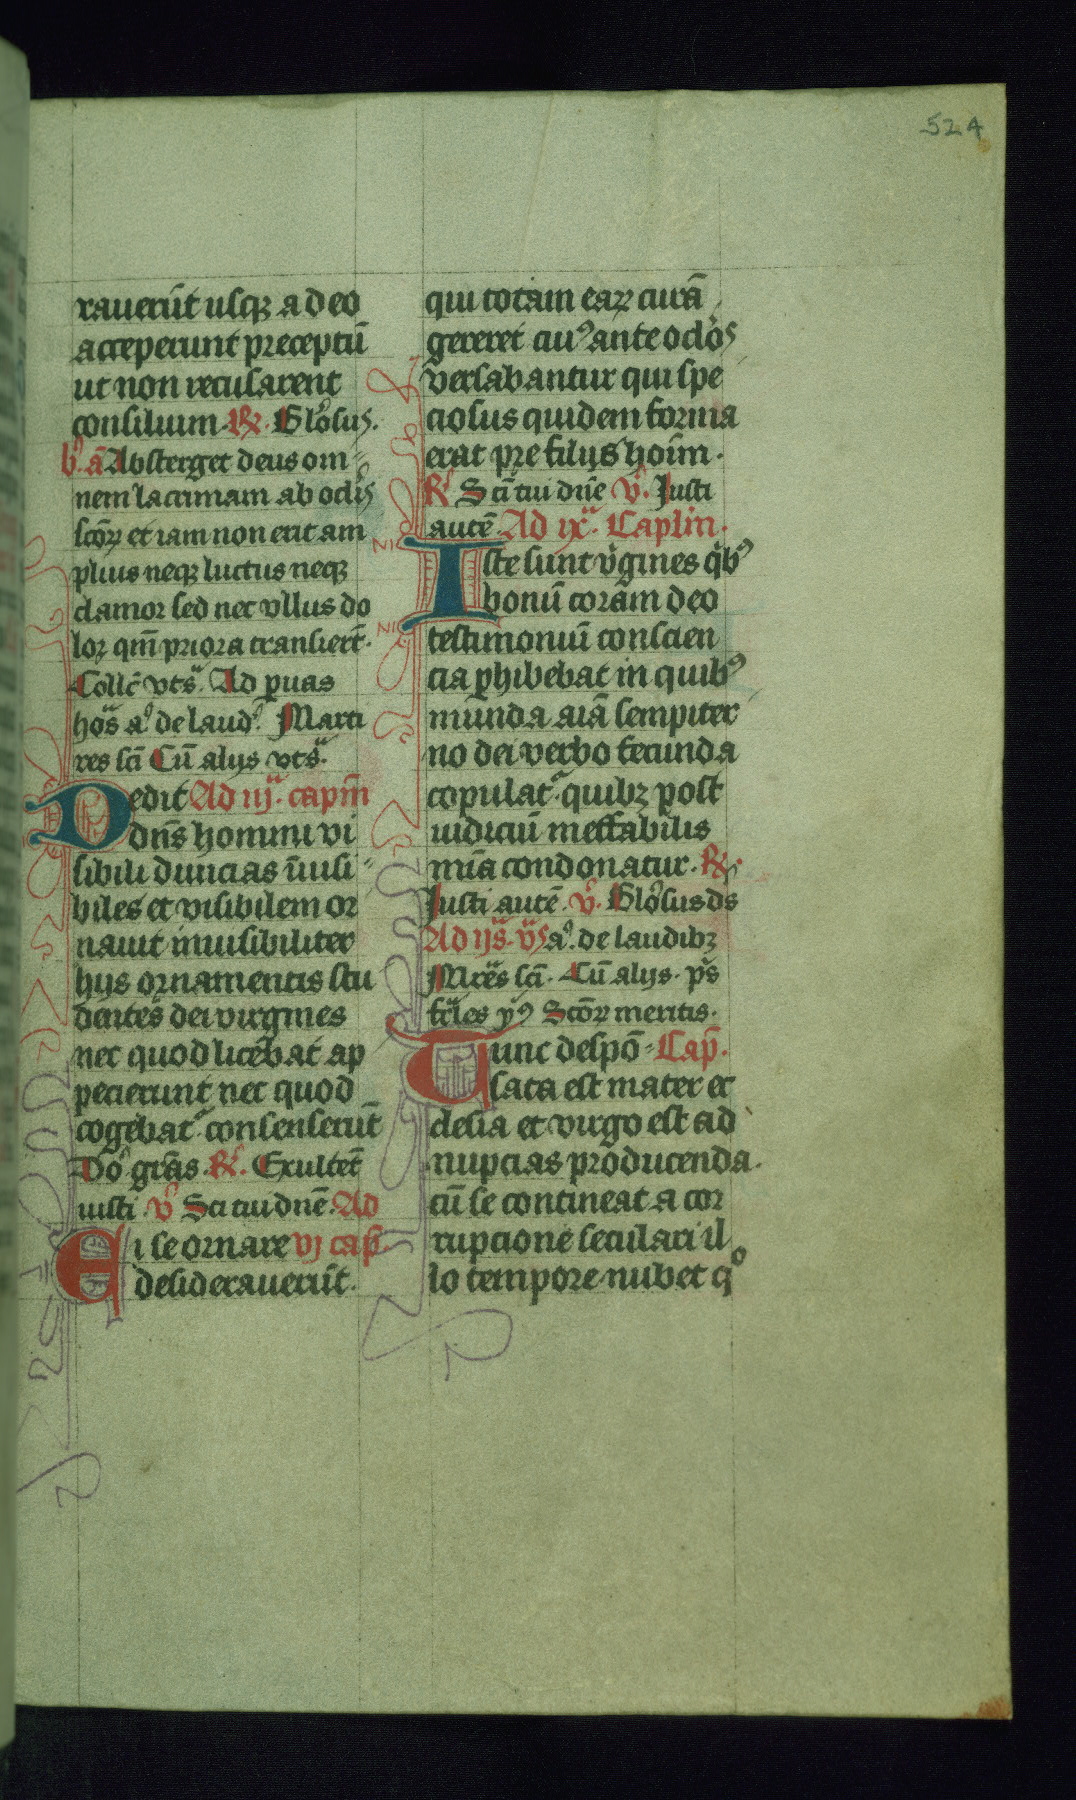 524
rauerūt usqꝫ a deo
acceperunt preceptū
ut non recusarent
consilium. R̃. Glõsus.
b᷎. añ Abſterget deus om
nem lacrimam ab oclis
sc̄oꝝ et iam non erit am
plius neqꝫ luctus neqꝫ
clamor sed nec vllus do
lor qm̄ priora transierūt.
Collc̄ vts̄. Ad ꝑuas
hos̄ a᷎ de laud᷎. Marti
res sc̄i Cū alijs vts̄.
Dedit Ad iij. capm̄
dn̄s homini vi
sibili diuicias īuisi
biles et visibilem or
nauit inuisibiliter
hijs ornamentis stu
dentes dei virgines
nec quod licebat ap
pecierunt nec quod
cogebat᷑ consenserūt
Do gr̄as. R̃. Exultēt
iusti. v᷎ Sc̄i tui dn̄e. Ad
Ei se ornare vj cap̄.
desiderauerūt.
qui totam eaꝝ curā
gereret cuiꝰ ante oclõs
versabantur qui spe
ciosus quidem forma
erat pre filijs hoīm.
R̃ Sc̄i tui dn̄e v᷎. Iusti
autē. Ad ix. Capl̄m.
Iste sunt v̄gines q̄bꝰ
bonū coram deo
testimoniū conscien
cia ꝑhibebat in quibꝰ
munda aīa sempiter
no dei verbo fecunda
copulat᷑ quibꝫ post
iudiciū ineffabilis
mīa condonatur. R̃.
Iusti autē. v᷎. Glõsus ds
Ad ijs. v̄s a᷎. de laudibꝫ
Mr̄es sc̄i. Cū alijs. p̄s
fr̄les yꝰ Sc̄oꝝ meritis.
Tunc despō Cap̄.
sata est mater ec
clesia et virgo est ad
nupcias producenda.
cū se contineat a cor
rupcione seculari il
lo tempore nubet qͦ